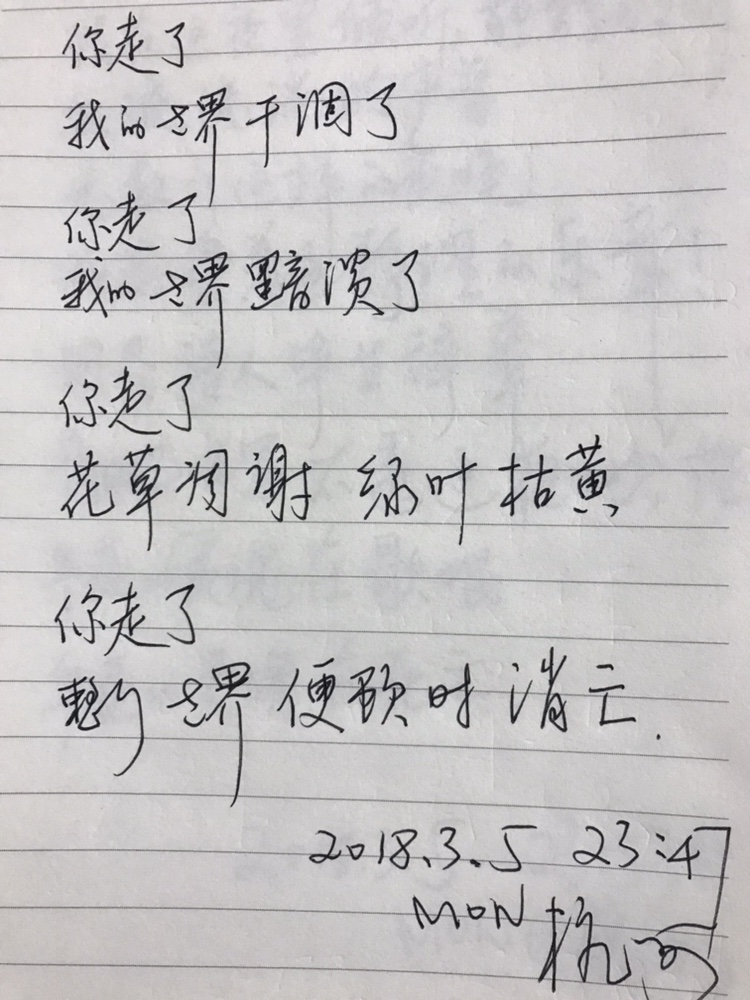 你走了
我的世界干涸了
你走了
我的世界黯淡了
你走了
花草凋谢 绿叶枯黄
你走了
整个世界便顿时消亡.
2018.3.5 23:47
MON 杭